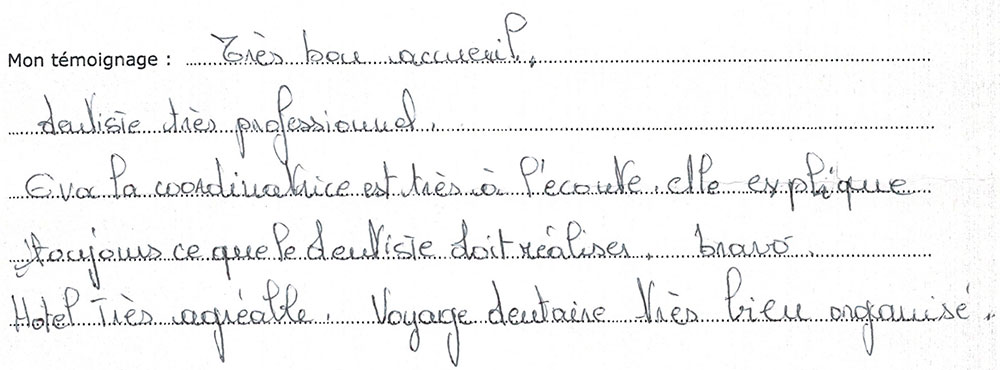 Mon témoignage : Très bon accueil.
dentiste très professionnel.
Eva la coordinatrice est très à l'écoute. elle explique
toujours ce que le dentiste doit réaliser. bravo
Hotel Très agréable. Voyage dentaire Très bien organisé.